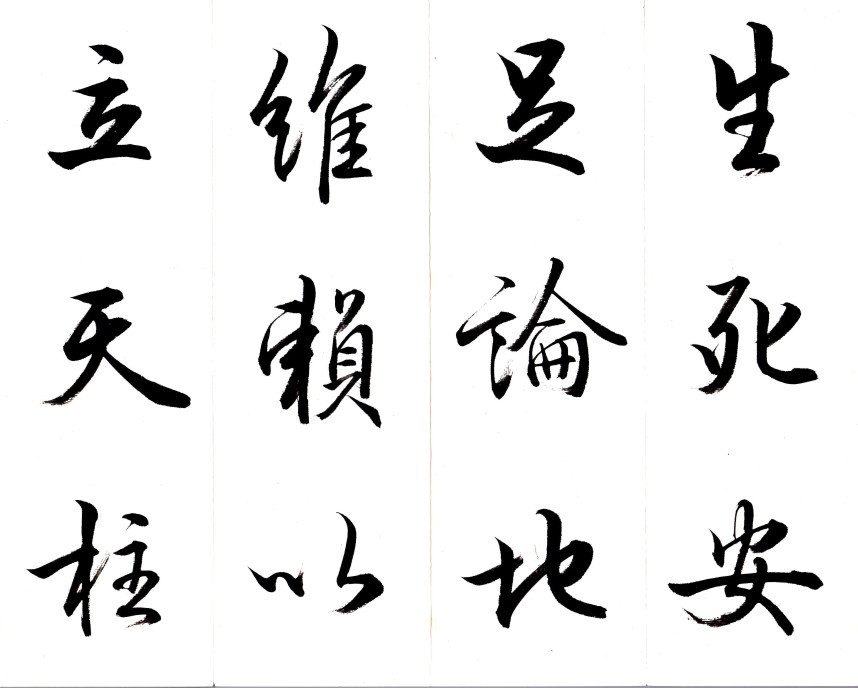 生死安
足論地
維賴以
立天柱